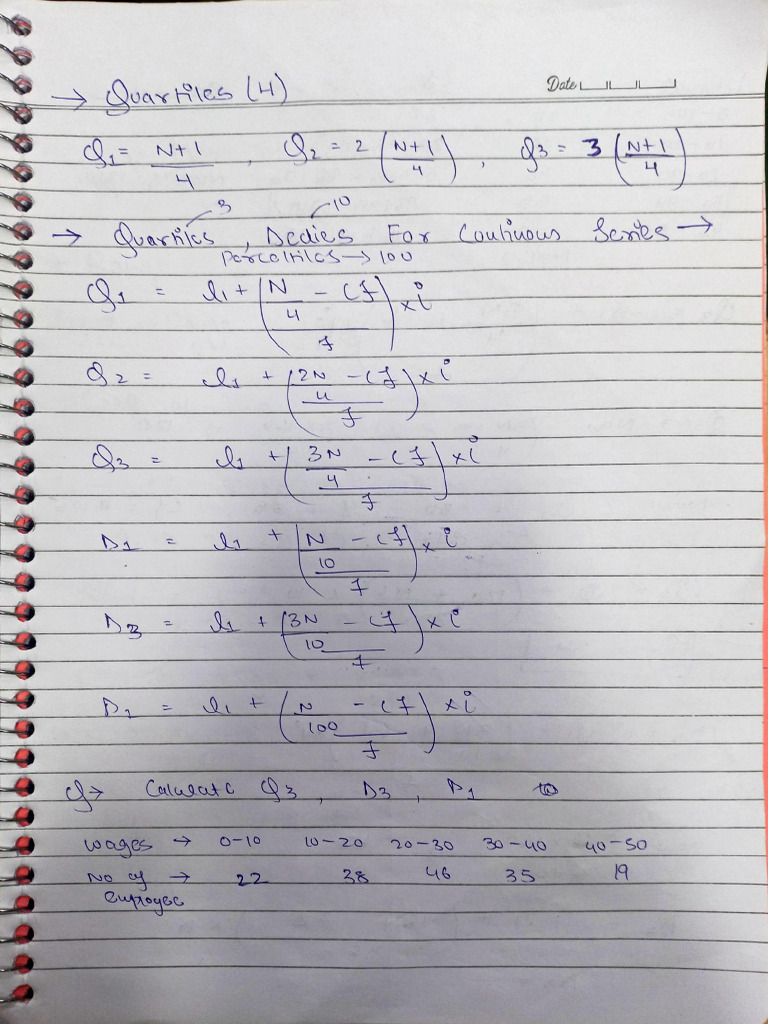 Date
→ Quartiles (4)
Q1 = N+1/4 , Q2 = 2 (N+1/4) , Q3 = 3 (N+1/4)
3 10
→ Quartiles , Decies For Continous Series →
Percentiles → 100
Q1 = l1 + (N/4 - Cf / f) × i
Q2 = l1 + (2N/4 - Cf / f) × i
Q3 = l1 + (3N/4 - Cf / f) × i
D1 = l1 + (N/10 - Cf / f) × i
D3 = l1 + (3N/10 - Cf / f) × i
= l1 + (N/100 - Cf / f) × i
Q→ Calculate Q3 , D3 , P1
Wages → 0-10 10-20 20-30 30-40 40-50
No of → 22 38 46 35 19
employee